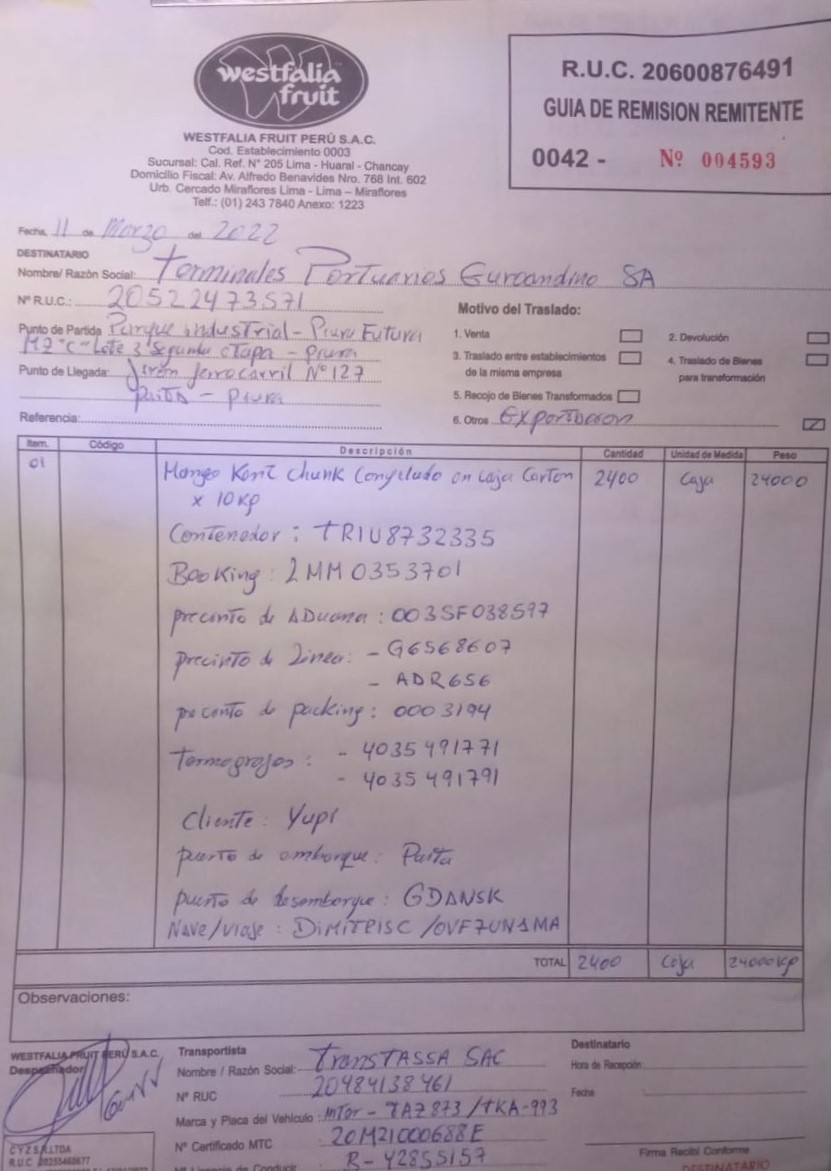 westfalia
fruit
WESTFALIA FRUIT PERÚ S.A.C.
Cod. Establecimiento 0003
Sucursal: Cal. Ref. N° 205 Lima - Huaral - Chancay
Domicilio Fiscal: Av. Alfredo Benavides Nro. 768 Int. 602
Urb. Cercado Miraflores Lima - Lima – Miraflores
Telf.: (01) 243 7840 Anexo: 1223
R.U.C. 20600876491
GUIA DE REMISION REMITENTE
0042 - Nº 004593
Fecha, 11 de Marzo del 2022
DESTINATARIO
Nombre/ Razón Social: Terminales Portuarios Euroandino SA
N° R.U.C.: 20522473571
Punto de Partida Parque industrial - Piura Futura
MZ "C" Lote 3 Segunda etapa - Piura
Punto de Llegada: Jiron ferrocarril N° 127
Paita - Piura
Referencia:
Motivo del Traslado:
1. Venta
2. Devolución
3. Traslado entre establecimientos
de la misma empresa
4. Traslado de Bienes
para transformación
5. Recojo de Bienes Transformados
6. Otros Exportacion
Item. Código Descripción Cantidad Unidad de Medida Peso
01 Mango Kent Chunk Congelado en caja Carton 2400 Caja 24000
x 10 Kg
Contenedor : TRIU8732335
Booking : LMM0353701
precinto de ADuana : 003SF038597
precinto de Linea: - G6568607
- ADR656
precinto de packing : 0003194
Termografos : - 4035491771
- 4035491791
Cliente : Yupi
puerto de embarque : Paita
puerto de desembarque : GDANSK
Nave/viaje : DiMiTRISC /OVF7UN1MA
TOTAL 2400 Caja 24000Kg
Observaciones:
WESTFALIA FRUIT PERÚ S.A.C.
Despachador
CYZ SRLTDA
Transportista
Nombre / Razón Social: TransTASSA SAC
N° RUC 20484138461
Marca y Placa del Vehículo : inTer - TAZ873 /TKA-993
N° Certificado MTC 20M21000688E
B - 42855157
Destinatario
Hora de Recepción:
Fecha
Firma Recibí Conforme
DESTINATARIO